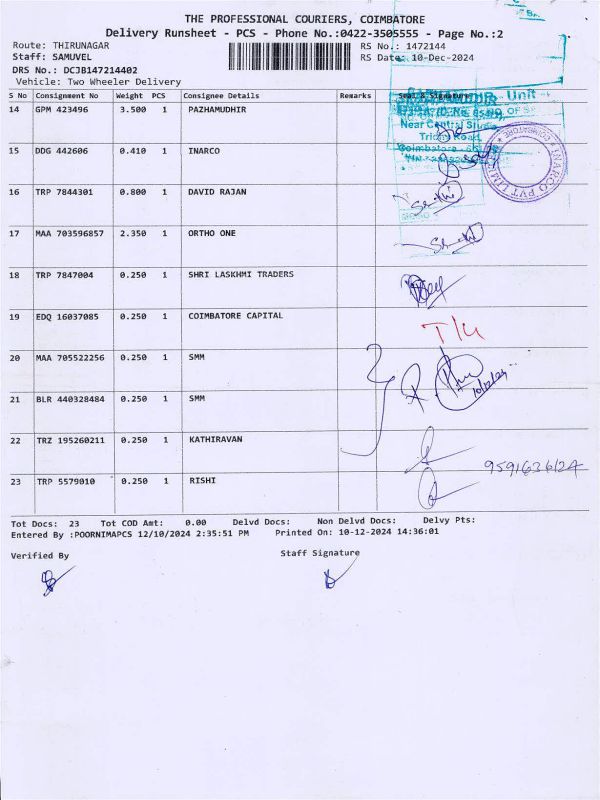 THE PROFESSIONAL COURIERS, COIMBATORE
Delivery Runsheet - PCS - Phone No.:0422-3505555 - Page No.:2
Route: THIRUNAGAR RS No.: 1472144
Staff: SAMUVEL RS Date: 10-Dec-2024
DRS No.: DCJB147214402
Vehicle: Two Wheeler Delivery
S No Consignment No Weight PCS Consignee Details Remarks Seal & Signature
14 GPM 423496 3.500 1 PAZHAMUDHIR
Unit
Near Central Studio
Road
Coimbatore
15 DDG 442606 0.410 1 INARCO
INARCO PVT LIMITED
COIMBATORE
16 TRP 7844301 0.800 1 DAVID RAJAN
17 MAA 703596857 2.350 1 ORTHO ONE
18 TRP 7847004 0.250 1 SHRI LASKHMI TRADERS
19 EDQ 16037085 0.250 1 COIMBATORE CAPITAL
20 MAA 705522256 0.250 1 SMM
10/12/24
21 BLR 440328484 0.250 1 SMM
22 TRZ 195260211 0.250 1 KATHIRAVAN
23 TRP 5579010 0.250 1 RISHI
Tot Docs: 23 Tot COD Amt: 0.00 Delvd Docs: Non Delvd Docs: Delvy Pts:
Entered By :POORNIMAPCS 12/10/2024 2:35:51 PM Printed On: 10-12-2024 14:36:01
Verified By Staff Signature